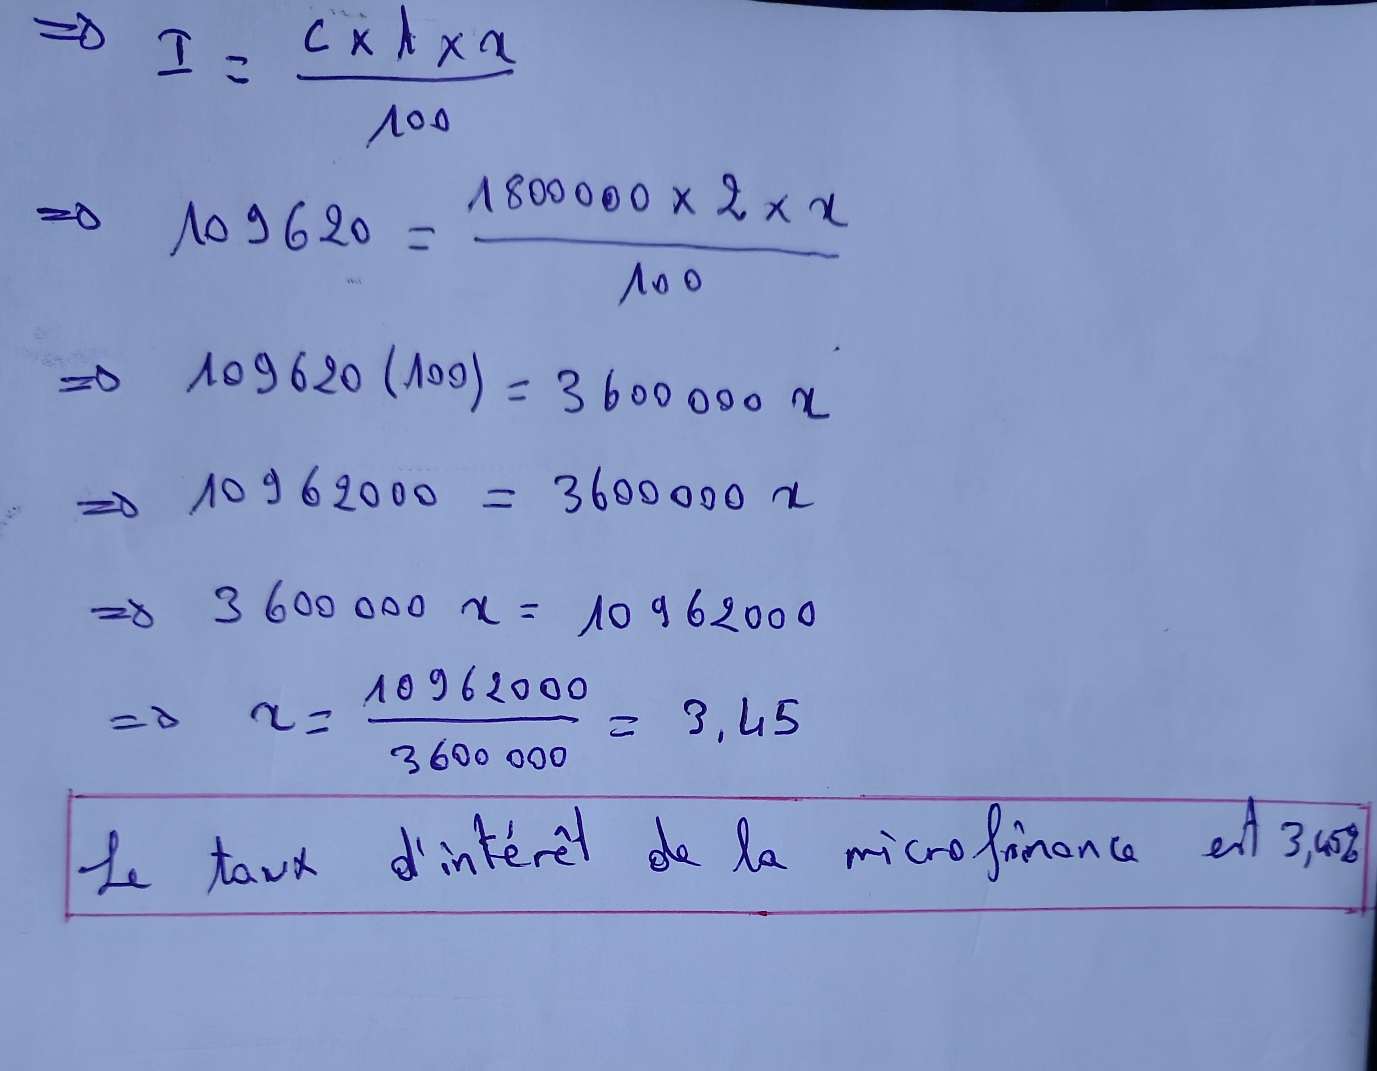 ⇒ I = C x t x x / 100
⇒ 109620 = 1800000 x 2 x x / 100
⇒ 109620 (100) = 3600000 x
⇒ 10962000 = 3600000 x
⇒ 3600000 x = 10962000
⇒ x = 10962000 / 3600000 = 3,45
Le taux d'intérêt de la microfinance est 3,45%